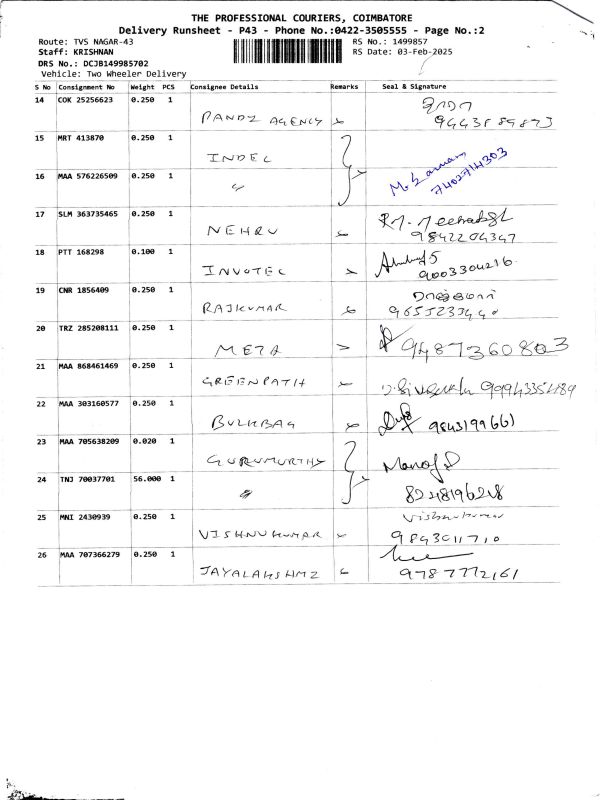 THE PROFESSIONAL COURIERS, COIMBATORE
Delivery Runsheet - P43 - Phone No.:0422-3505555 - Page No.:2
Route: TVS NAGAR-43 RS No.: 1499857
Staff: KRISHNAN RS Date: 03-Feb-2025
DRS No.: DCJB149985702
Vehicle: Two Wheeler Delivery
S No Consignment No Weight PCS Consignee Details Remarks Seal & Signature
14 COK 25256623 0.250 1 PANDI AGENCY
15 MRT 413870 0.250 1 INDEL
16 MAA 576226509 0.250 1 " 7402714303
17 SLM 363735465 0.250 1 NEHRU 9842204347
18 PTT 168298 0.100 1 INVOTEC 9003304216
19 CNR 1856409 0.250 1 RAJKUMAR
20 TRZ 285208111 0.250 1 META 9487360803
21 MAA 868461469 0.250 1 GREENPATH
22 MAA 303160577 0.250 1 BULKBAG 9843199661
23 MAA 705638209 0.020 1 GURUMURTHY
24 TNJ 70037701 56.000 1 "
25 MNI 2430939 0.250 1 VISHNUKUMAR Vishnukumar
9843011710
26 MAA 707366279 0.250 1 JAYALAKSHMI 9787772161